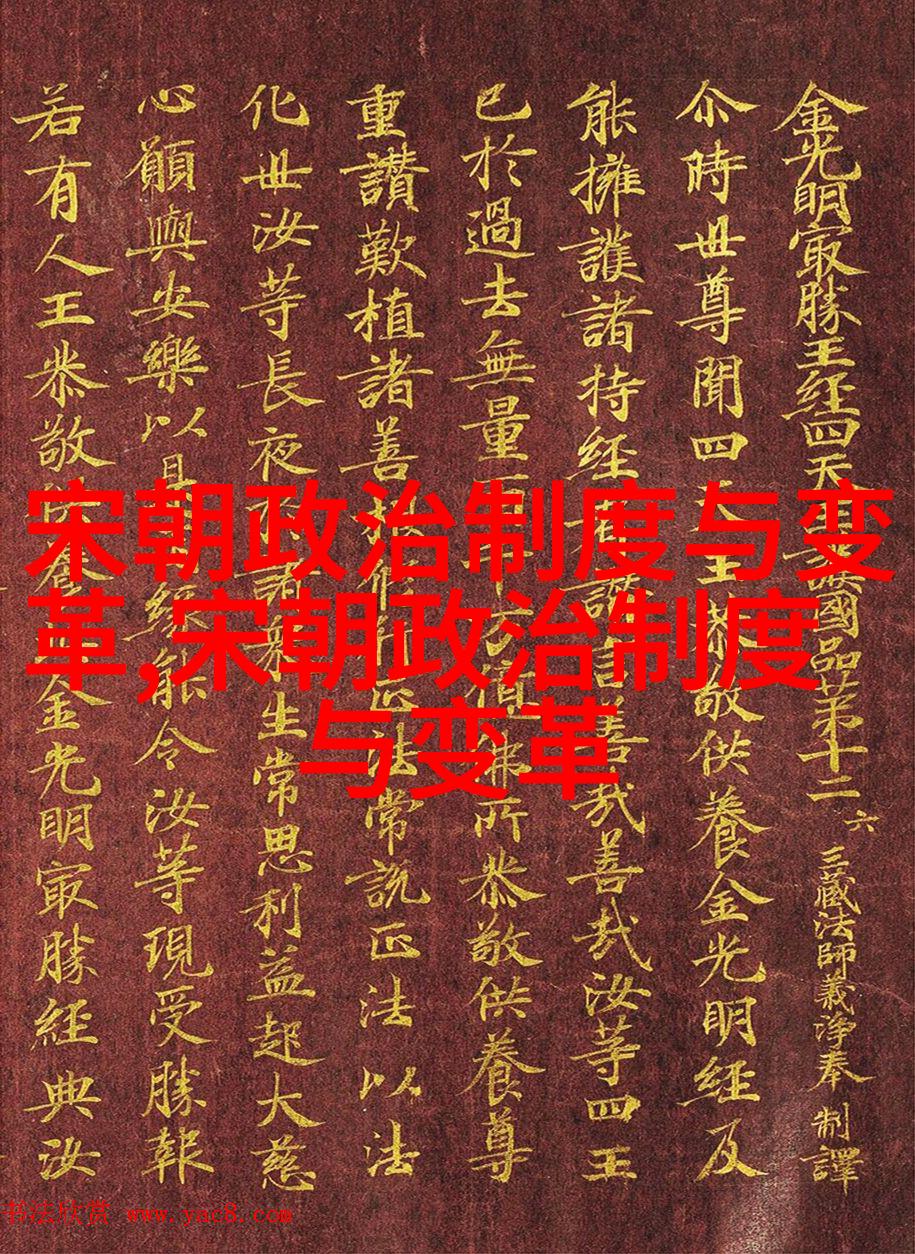 金光明㝡勝王經四天王護國品苐十二 六 三藏法師義淨奉 制譯
尒時世尊聞四天王恭敬供養金光明經及
能擁護諸持經者讚言善哉善哉汝等四王
已於過去無量百千万億佛所恭敬供養尊
重讚歎植諸善根修行正法常說正法以法
化世汝等長夜於諸衆生常思利益起大慈
心願與安樂以是因緣能令汝等現受勝報
若有人王恭敬供養金光明㝡勝經典汝
宋朝政治制度与变
革,宋朝政治制度
与变革
书法欣赏 www.yac8.com